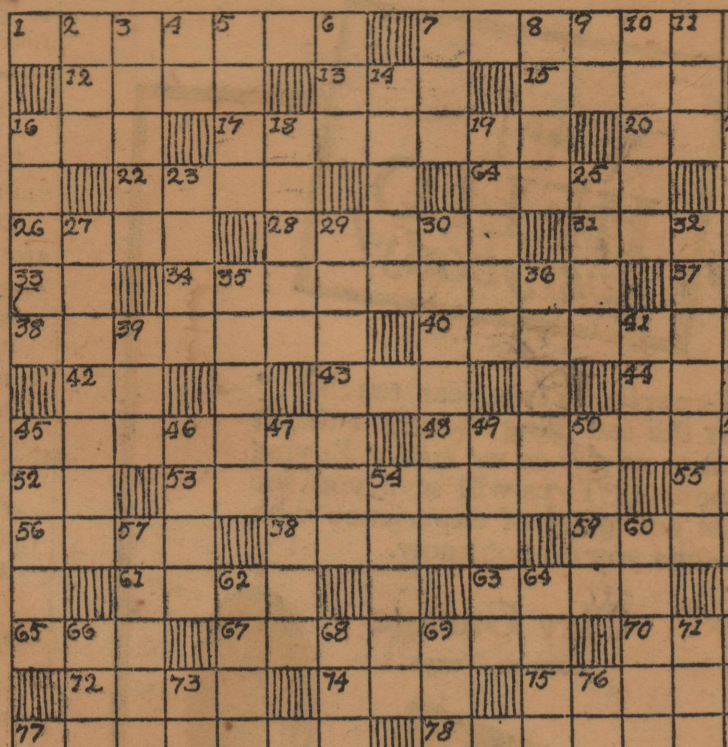 1 2 3 4 5 6 7 8 9 10 11
12 13 14 15
16 17 18 19 20
22 23 64 25
26 27 28 29 30 31 32
33 34 35 36 37
38 39 40 41
42 43 44
45 46 47 48 49 50
52 53 54 55
56 57 38 59 60
61 62 63 64
65 66 67 68 69 70 71
72 73 74 75 76
77 78